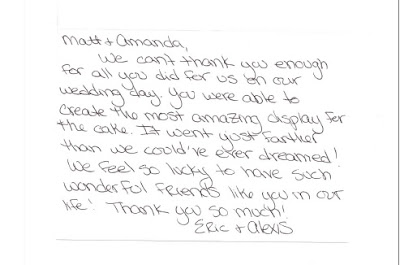 Matt + Amanda,
We can't thank you enough
for all you did for us on our
wedding day. You were able to
create the most amazing display for
the cake. It went just farther
than we could've ever dreamed!
We feel so lucky to have such
wonderful friends like you in our
life! Thank you so much!
Eric + Alexis